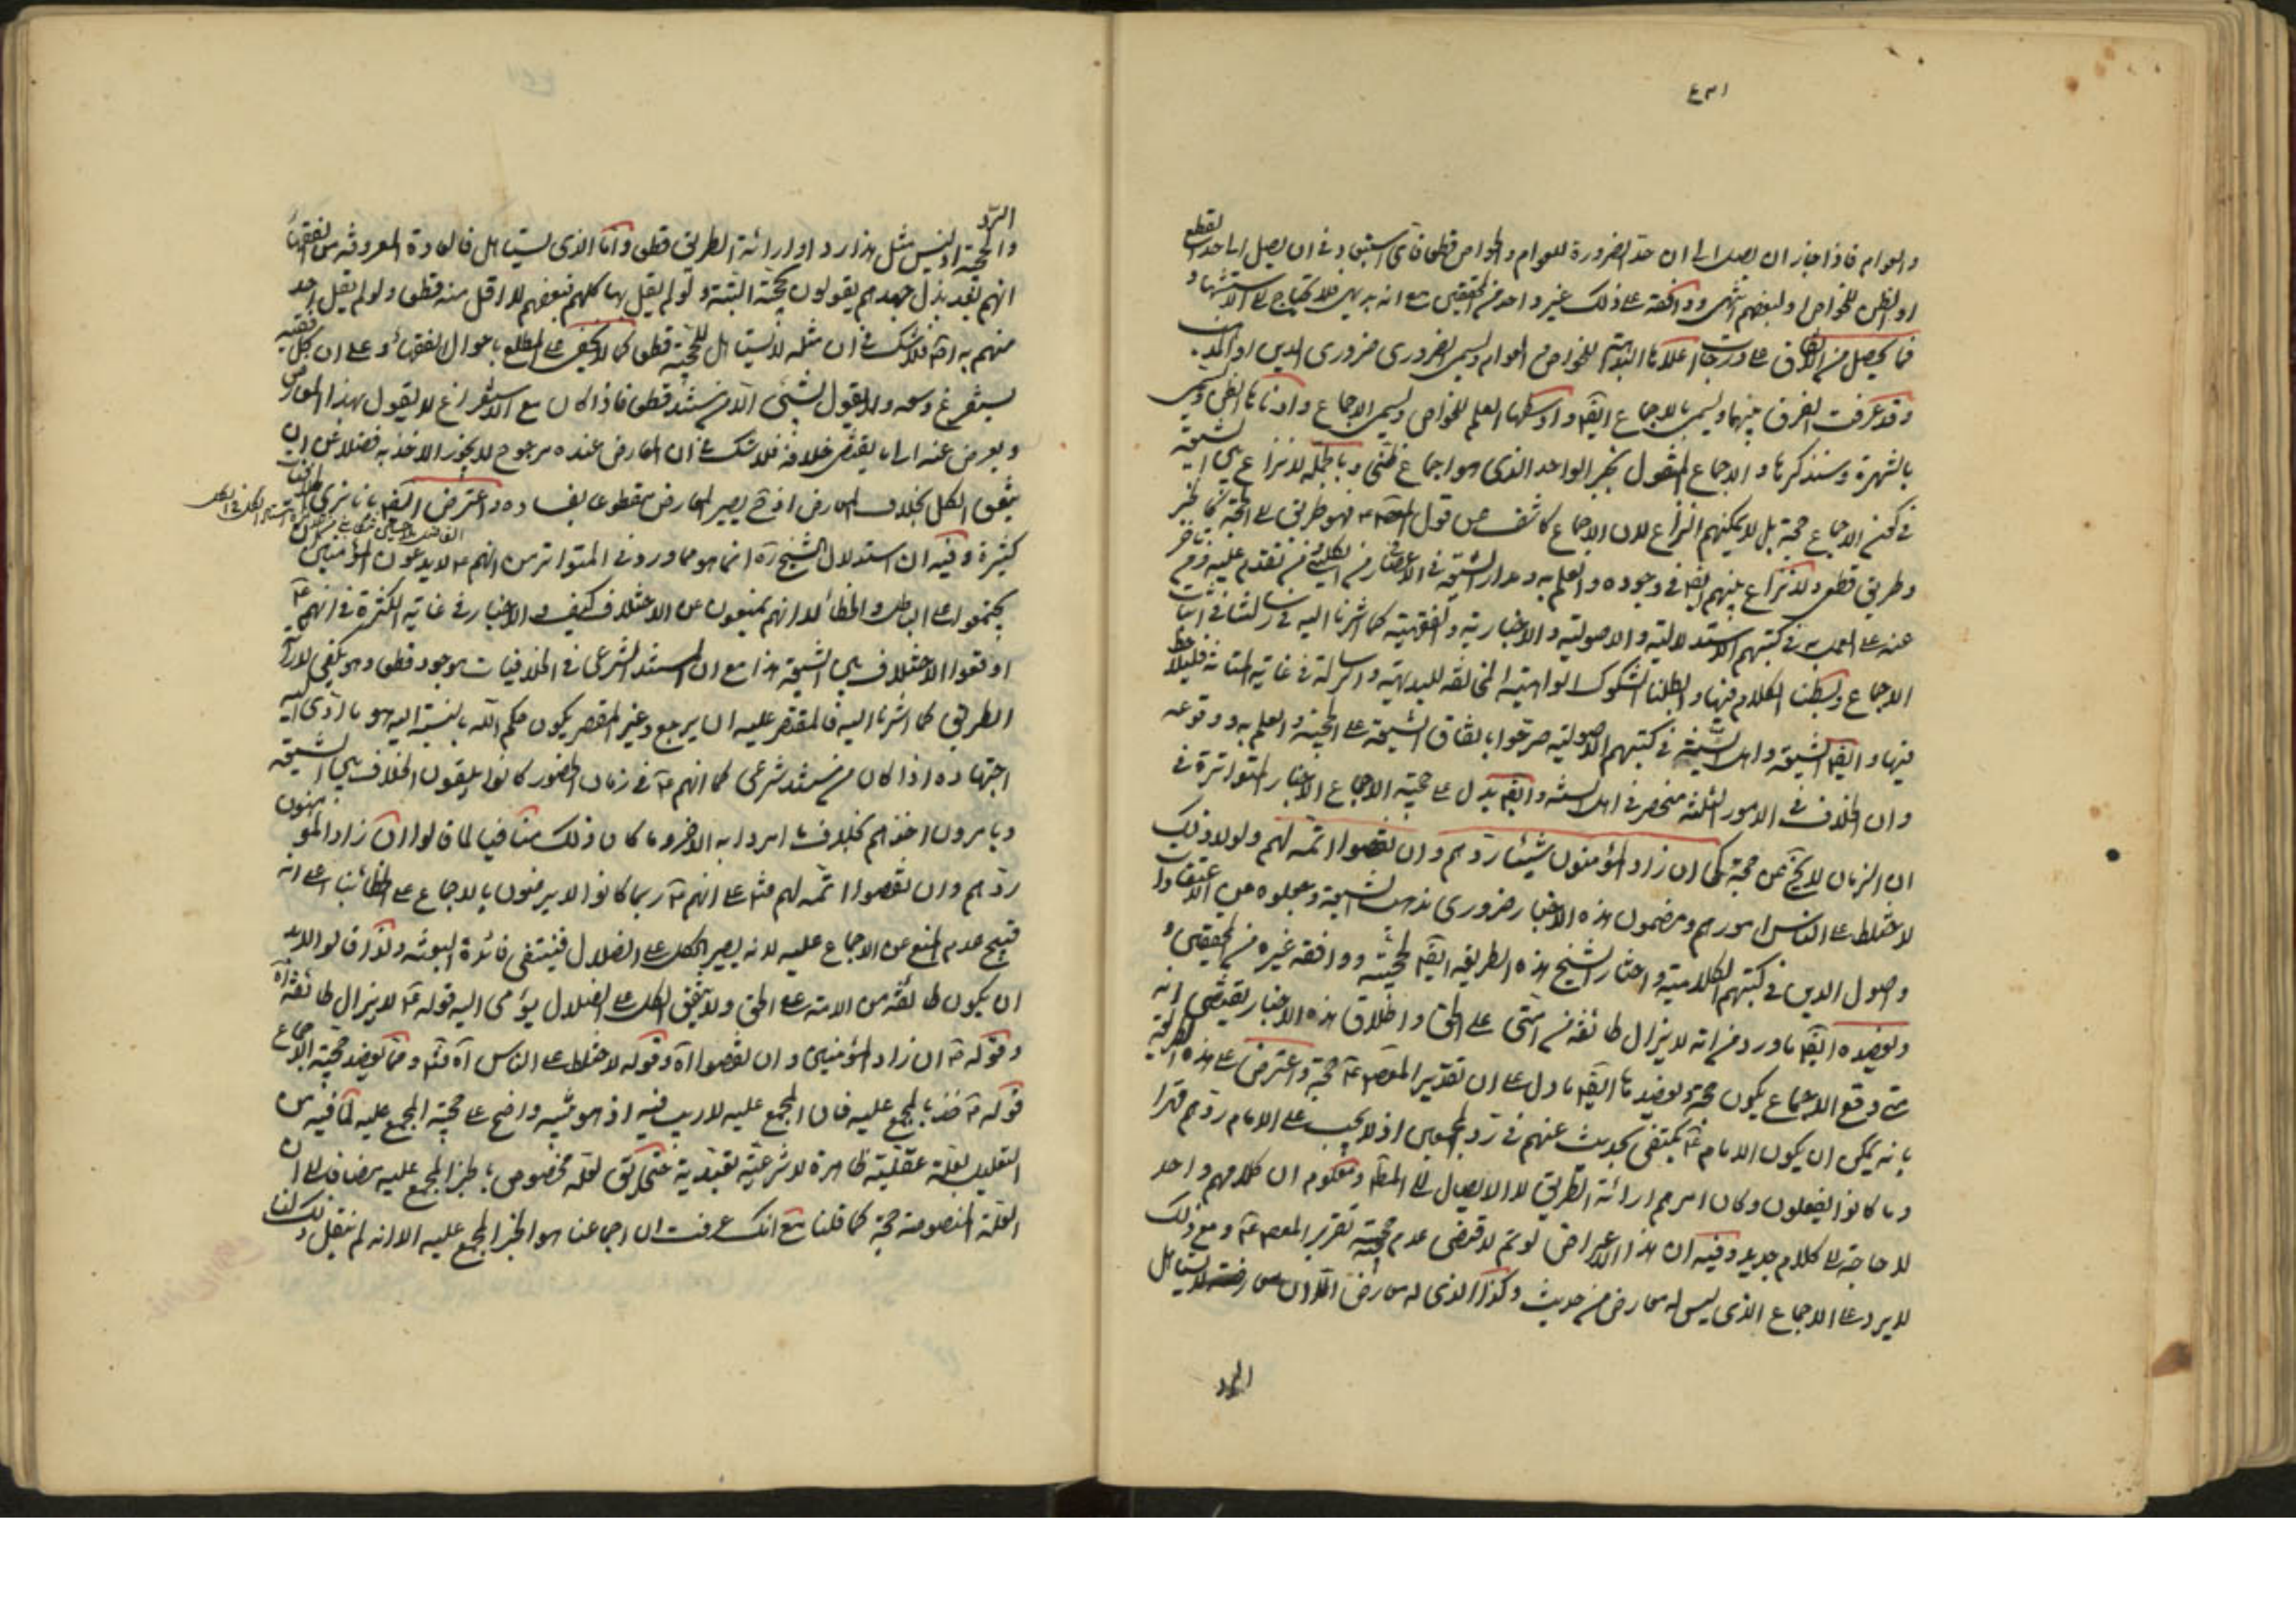 والعوام فاذا جاز ان يصل الى ان حد الضرورة للعوام والخواص قطعا فأي استبعاد في ان يصل الى حد القطع
او الظن للخواص او لبعضهم انتهى ووافقه على ذلك غير واحد من المحققين مع انه بديهي فلا يحتاج الى الاستشهاد
فما يحصل من الاتفاق على درجات اعلاها البداهة للخواص والعوام ويسمى الضروري ضروري الدين او المذهب
وقد عرفت الفرق بينهما ويسمى بالاجماع ايضا واوسطها العلم للخواص ويسمى الاجماع وادناها الظن ويسمى
بالشهرة وسنذكرها والاجماع المنقول بخبر الواحد الذي هو اجماع ظني وبالجملة لا نزاع بين الشيعة
في كون الاجماع حجة بل لا يمكنهم النزاع لان الاجماع كاشف عن قول فهو طريق الى الحجة كالخبر
وطريق قطعي ولا نزاع بينهم ايضا في وجوده والعلم به ومدار الشيعة في الاعصار من الكليني من تقدم عليه ومن تاخر
عنه على العمل به في كتبهم الاستدلالية والاصولية والاخبارية والفقهية كما اشرنا اليه في رسالتنا في اثبات
الاجماع وبسطنا الكلام فيها وابطلنا الشكوك الواهية المخالفة للبديهة والرسالة في غاية المتانة فليلاحظ
فيها وايضا الشيعة واهل السنة في كتبهم الاصولية صرحوا باتفاق الشيعة على الحجية والعلم به ووقوعه
وان الخلاف في الامور الثلثة منحصر في اهل السنة وايضا يدل على حجية الاجماع الاخبار المتواترة في
ان الزمان لا يخ عن حجة كي ان زاد المؤمنون شيئا ردهم وان نقصوا اتمه لهم ولولا ذلك
لاختلط على الناس امورهم ومضمون هذه الاخبار ضروري مذهب الشيعة وجعلوه من اعتقادات
واصول الدين في كتبهم الكلامية واختار الشيخ هذه الطريقة ايضا لحجيته ووافقه غيره من المحققين و
ويعضده ايضا ما ورد من انه لا يزال طائفة من امتي على الحق واطلاق هذه الاخبار يقتضي انه
متى وقع الاجماع يكون حجة ويعضدها ايضا ما دل على ان تقرير المعصوم حجة واعترض على هذه الطريقة
بانه يمكن ان يكون الامام يكتفي بحديث عنهم في رد المجمعين اذ لا يجب على الامام ردهم قهرا
وما كانوا يفعلون وكان امرهم ارائة الطريق لا الايصال الى المط ومعلوم ان كلامهم واحد
لا حاجة الى كلام جديد وفيه ان هذا الاعتراض لو تم لاقتضى عدم حجية تقرير المعصوم ومع ذلك
لا يرد على الاجماع الذي ليس له معارض من حديث وكذا الذي له معارض الا ان معارضه لا يستاهل
الرد
الرد
والحجية اذ ليس مثل هذا ردا ولا ارائة الطريق قطعا واما الذي يستاهل فالعادة المعروفة من الفقهاء
انهم بعد بذل جهدهم يقولون بحجيته البتة ولو لم يقل بها كلهم فبعضهم لا اقل منه قطعا ولو لم يقل احد
منهم به اصلا فلا شك في ان مثله لا يستاهل للحجية قطعا كما لا يخفى على المطلع باحوال الفقهاء وعلى ان كل فقيه
يستفرغ وسعه ولا يقول بشيء الا من مستند قطعا فاذا كان مع الاستفراغ لا يقول بهذا المعارض
ويعرض عنه الى ما يقتضي خلافه فلا شك في ان المعارض عنده مرجوح لا يجوز الاخذ به فضلا عن ان
يتفق الكل بخلاف المعارض اذ ح يصير المعارض مقطوعا بفساده واعترض ايضا بانا نرى
كثيرة وفيه ان استدلال الشيخ ره انما هو مما ورد في المتواتر من انهم لا يدعون المؤمنين
يجتمعوا على الباطل والخطأ لا انهم يمنعون عن الاختلاف كيف والاخبار في غاية الكثرة في انهم
اوقعوا الاختلاف بين الشيعة هذا مع ان المستند الشرعي في الخلافيات موجود قطعا وهو يكفي لارائة
الطريق كما اشرنا اليه فالمقصر عليه ان يرجع وغير المقصر يكون حكم الله بالنسبة اليه هو ما ادى اليه
اجتهاده اذا كان من مستند شرعي كما انهم في زمان الحضور كانوا يلقون الخلاف بين الشيعة
ويامرون احدهم بخلاف ما امروا به الاخر وما كان ذلك منافيا لما قالوا ان زاد المؤمنون
ردهم وان نقصوا اتمه لهم على انهم ربما كانوا لا يرضون بالاجماع على الخطأ بناء على انه
قبيح عدم المنع عن الاجماع عليه لانه يصير الكل على الضلال فينتفي فائدة البعثة ولذا قالوا لابد
ان يكون طائفة من الامة على الحق ولا يتفق الكل على الضلال يؤمي اليه قوله لا يزال طائفة اه
وقوله ان زاد المؤمنين وان نقصوا اه وقوله لاختلط على الناس اه ومما يعضد حجية الاجماع
قوله خذ بالمجمع عليه فان المجمع عليه لا ريب فيه اذ هو تنبيه واضح على حجية المجمع عليه لما فيه من
التعليل بعلة عقلية ظاهرة لا شرعية تعبدية حتى يق لعله مخصوص بالخبر المجمع عليه مضافا الى ان
العلة المنصوصة حجة كما قلنا مع انك عرفت ان اجماعنا هو الخبر المجمع عليه الا انه لم ينقل ذلك لنا